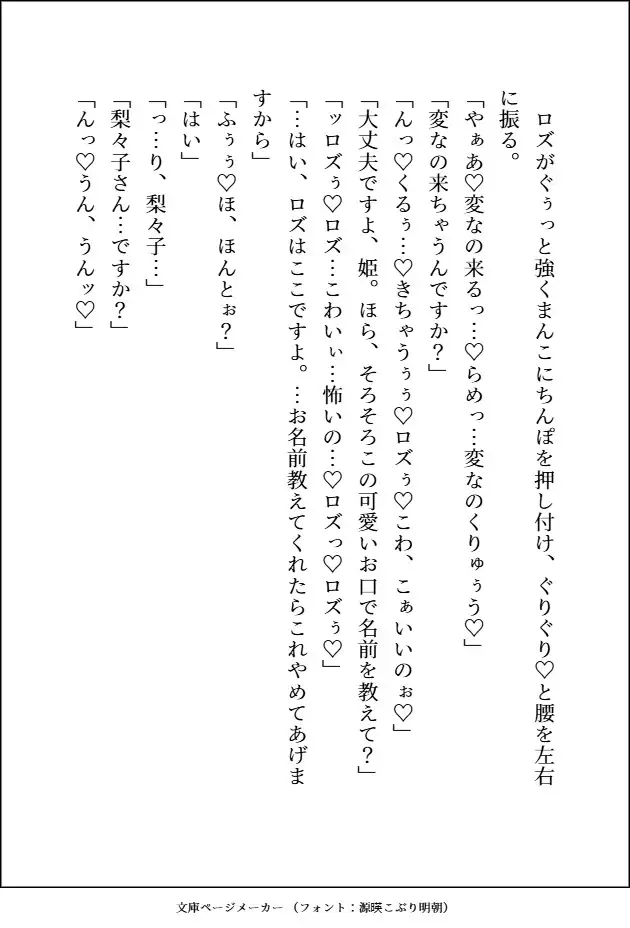 ロズがぐぅっと強くまんこにちんぽを押し付け、ぐりぐり♡と腰を左右
に振る。
「やぁあ♡変なの来るっ…♡らめっ…変なのくりゅぅう♡」
「変なの来ちゃうんですか？」
「んっ♡くるぅ…♡きちゃうぅぅ♡ロズぅ♡こわ、こぁいいのぉ♡」
「大丈夫ですよ、姫。ほら、そろそろこの可愛いお口で名前を教えて？」
「ッロズぅ♡ロズ…こわいぃ…怖いの…♡ロズっ♡ロズぅ♡」
「…はい、ロズはここですよ。…お名前教えてくれたらこれやめてあげま
すから」
「ふぅぅ♡ほ、ほんとぉ？」
「はい」
「っ…り、梨々子…」
「梨々子さん…ですか？」
「んっ♡うん、うんッ♡」
文庫ページメーカー（フォント：源暎こぶり明朝）